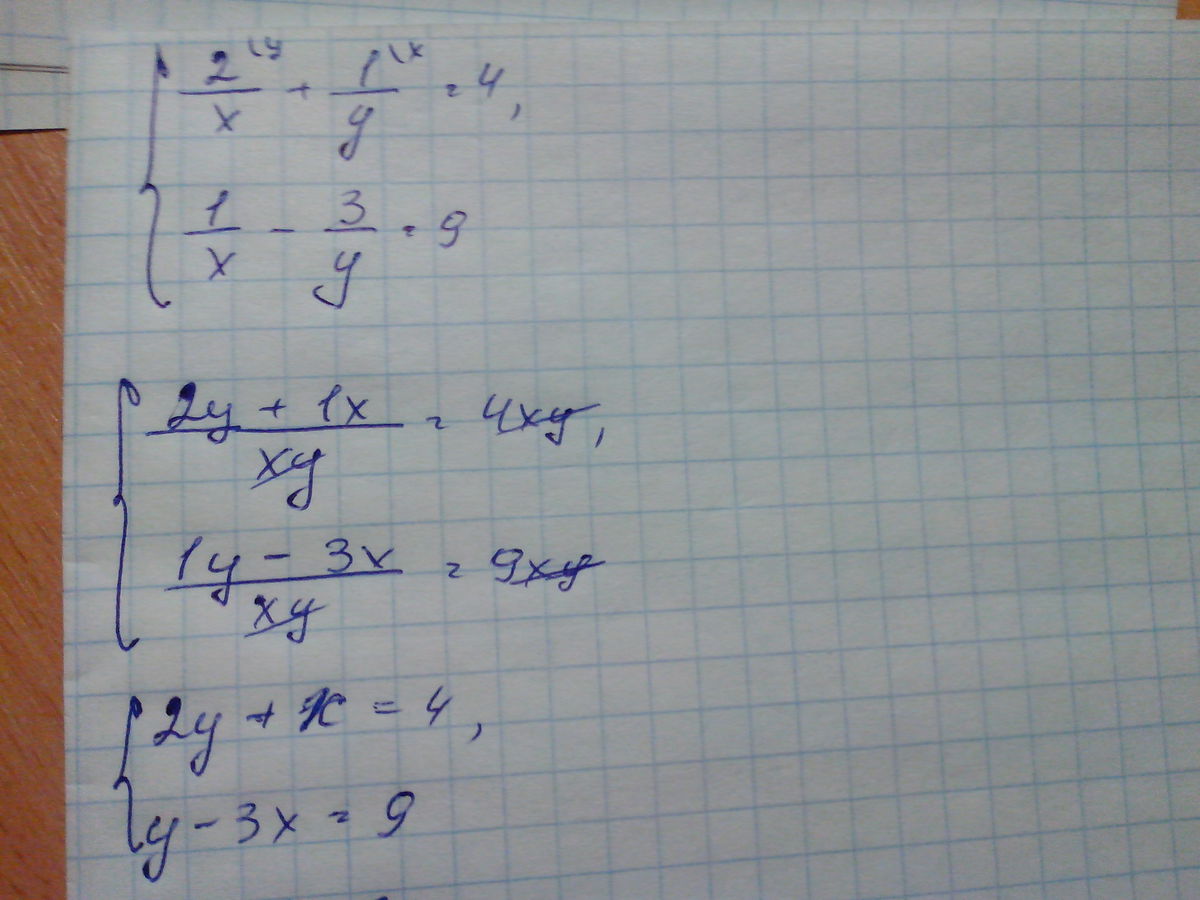 2\y/x + 1\x/y = 4,
1/x - 3/y = 9
2y + 1x/xy = 4xy,
1y - 3x/xy = 9xy
2y + x = 4,
y - 3x = 9